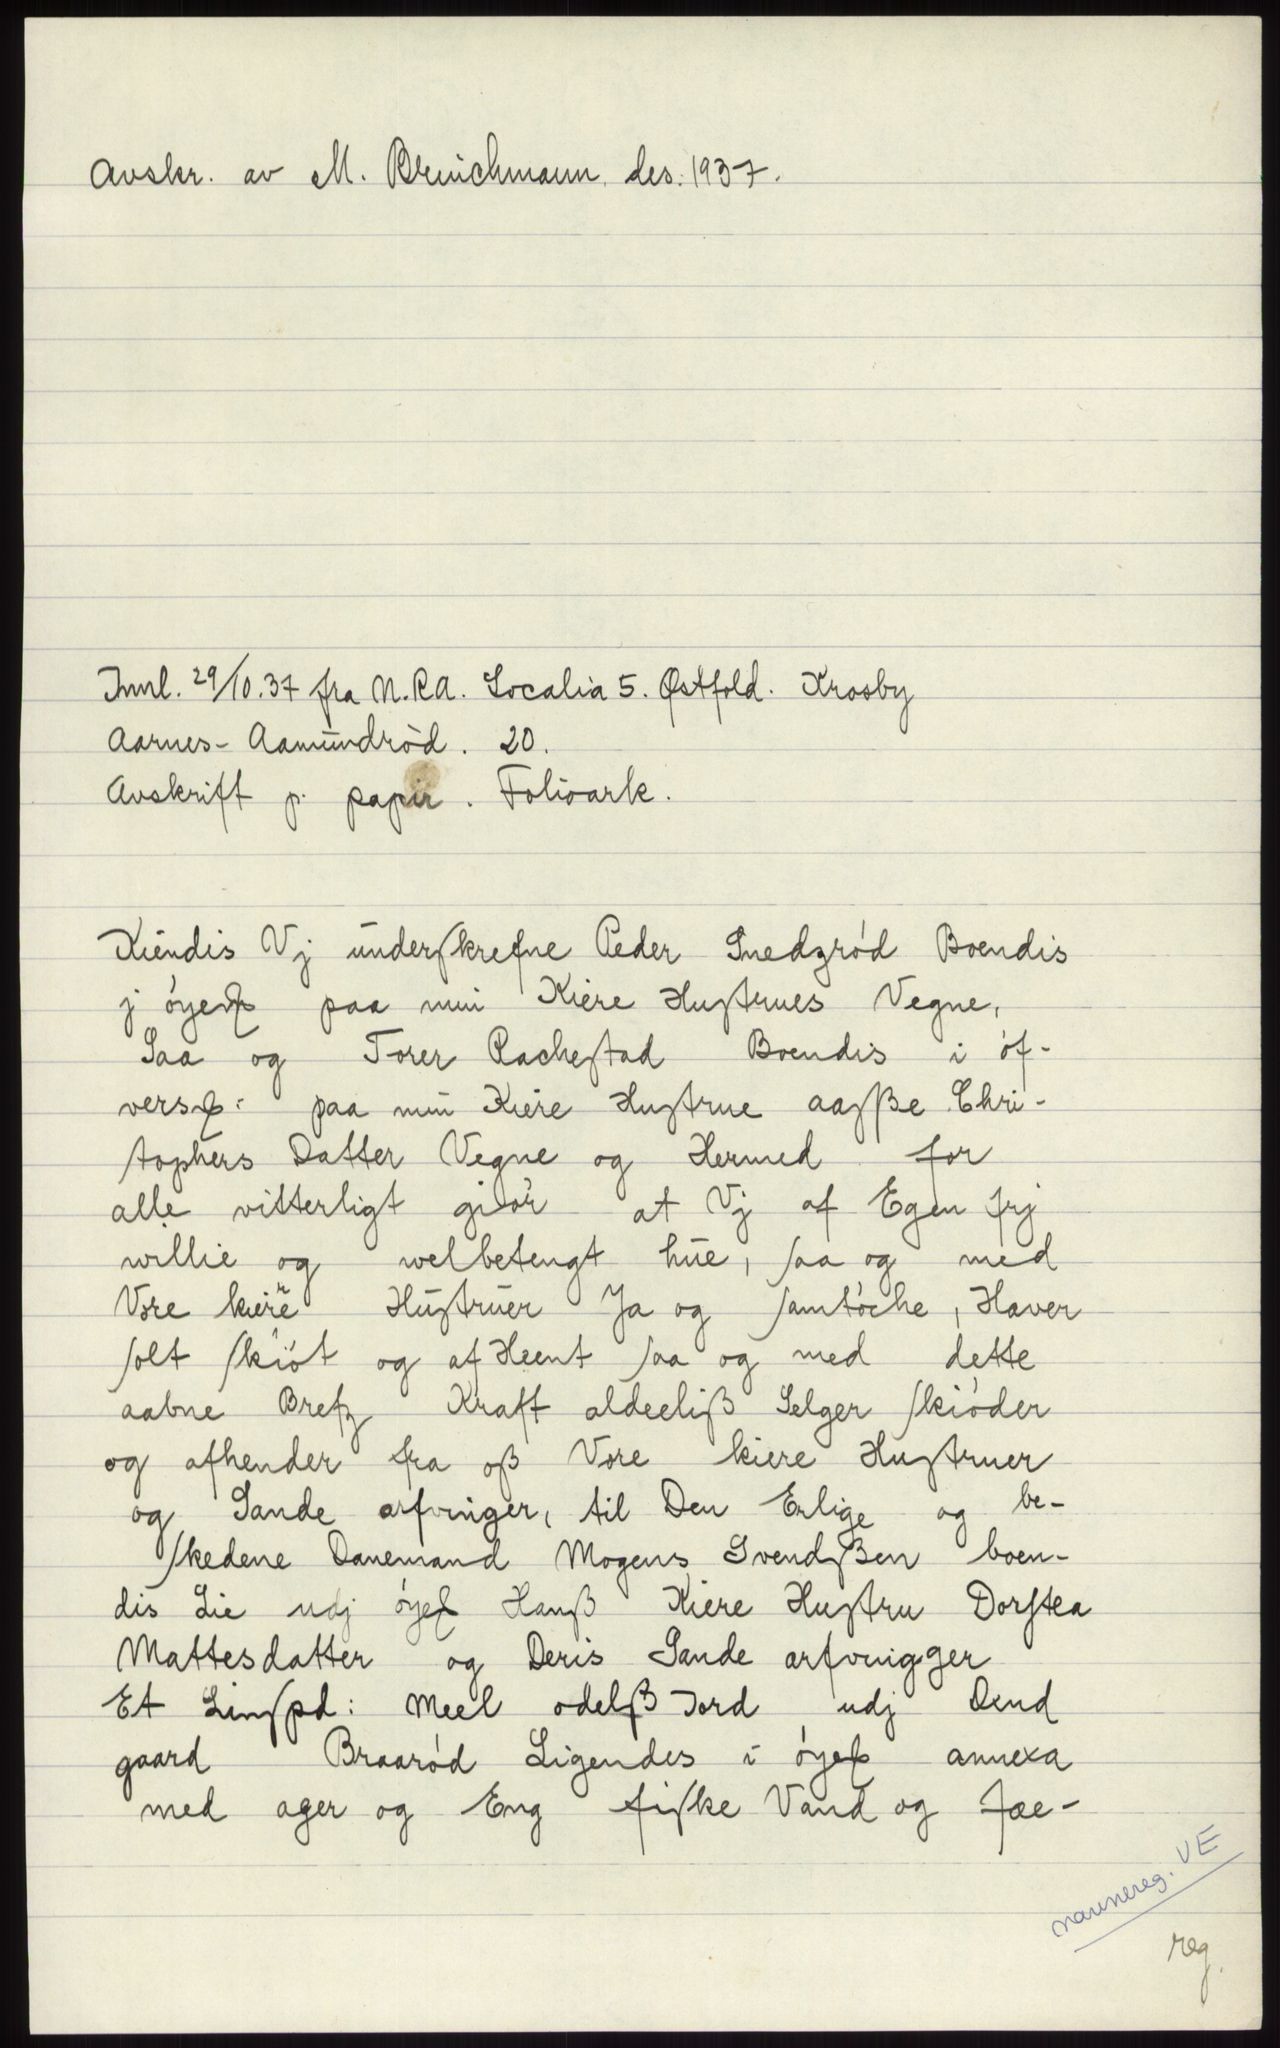 Avskr. av M. Brinichmann. des. 1937.
Innl. 29/10.37 fra N.R.A. Localia 5. Østfold. Krosby
Aarnes- Aamundrød. 20.
Avskrift p. papir. Folioark.
Kiendis Vj underskrefne Peder Snedzrød Boendis
j øye paa min Kiere Hustrues Vegne,
Saa og Torer Rachestad Boendis i øf-
vers: paa min Kiere Hustrue aasße Chri-
stophers Datter Vegne og Hermed for
alle vitterligt giør at Vj af Egen frj
willie og welbetengt hue, saa og med
Vore kiere Hustruer Ja og samtøche, Haver
solt skiøt og af Heent saa og med dette
aabne Brefz Kraft aldeeliß Selger skiøder
og afhender fra oß Vore kiere Hustruer
og Sande arfvinger, til Den Erlige og be-
skedene Danemand Mogens Svendßen boen-
dis Lie udj øye Hanß Kiere Hustru Dorstea
Mattesdatter og Deris Sande arfvingger
Et Linspd: Meel odelß Jord udj Dend
gaard Braarød Ligendes i øye annexa
med ager og Eng fiske Vand og fæ-
navnereg. VE
reg.